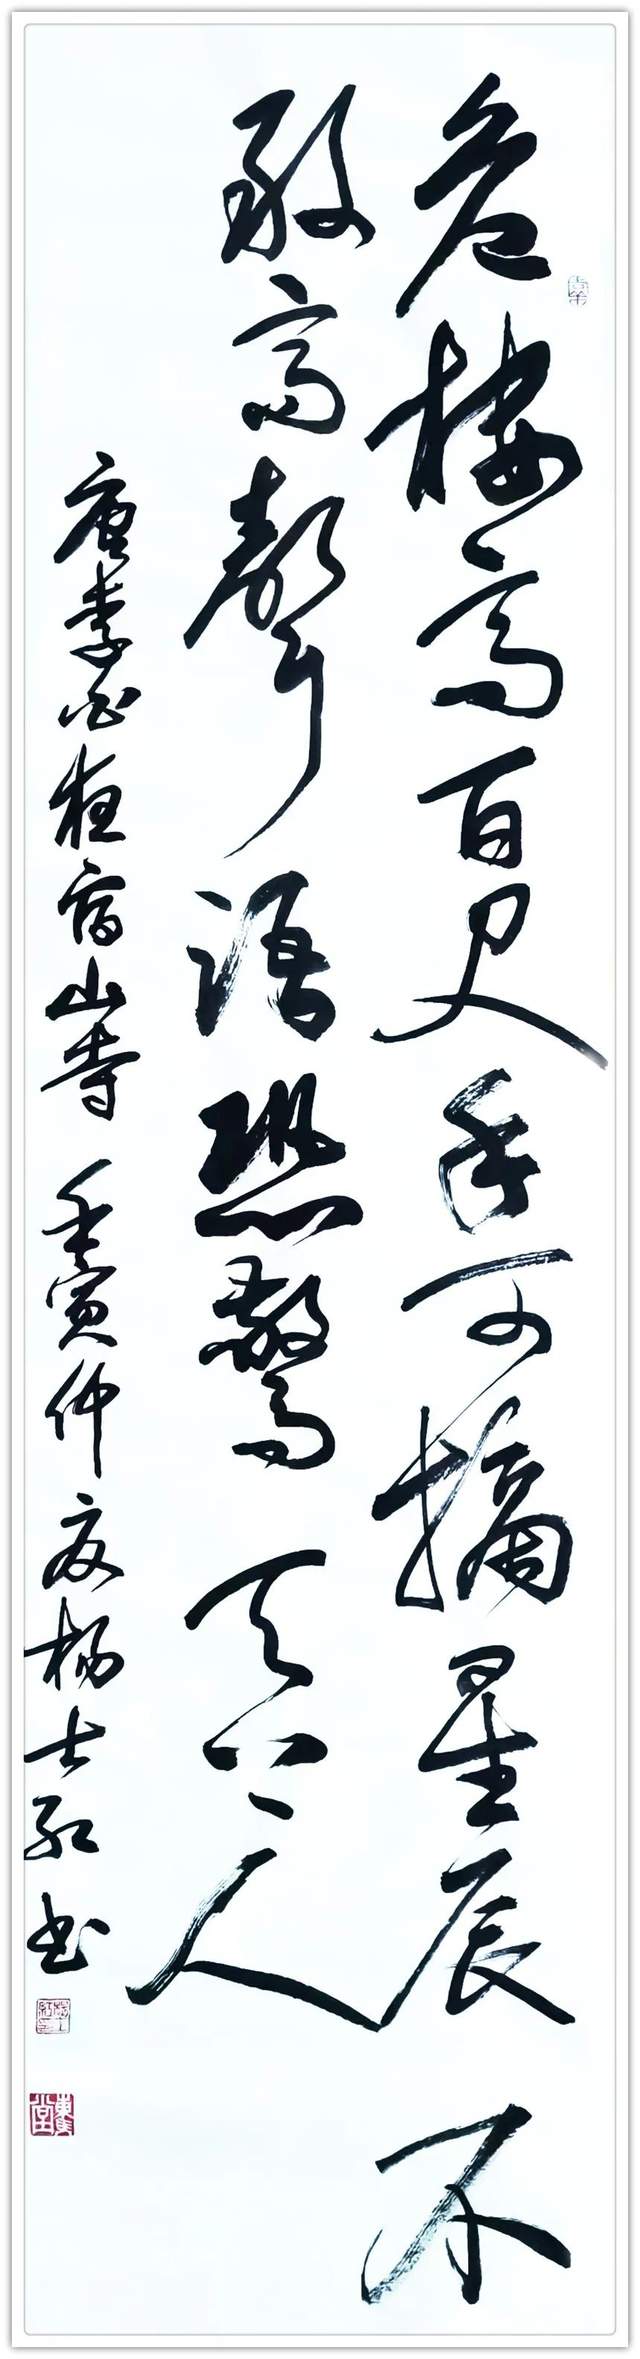 危楼高百尺手可摘星辰不
敢高聲語恐驚天上人
唐李白夜宿山寺 壬寅仲夏楊士紅书